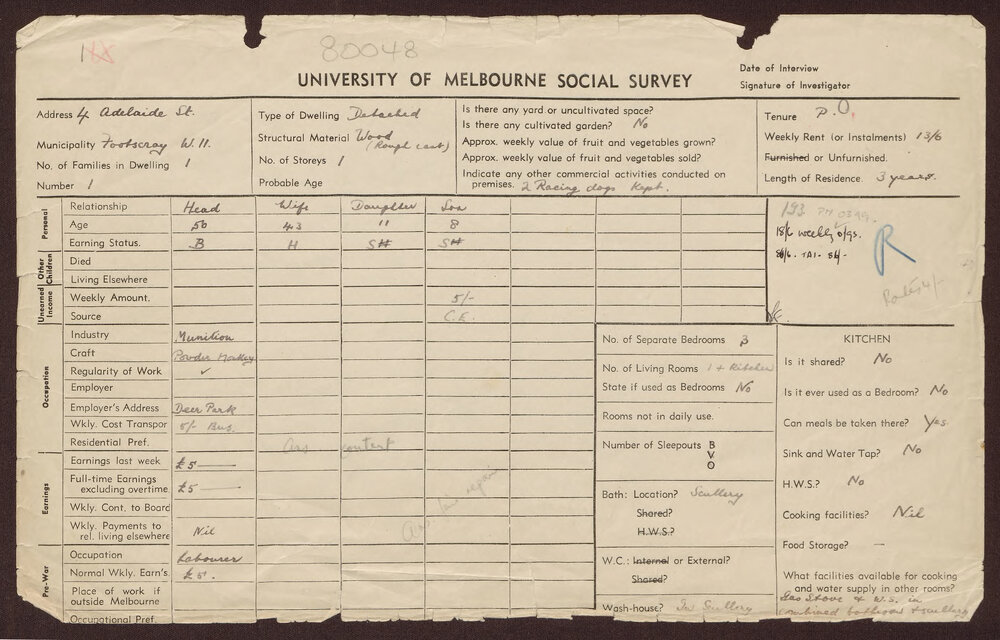 80048
UNIVERSITY OF MELBOURNE SOCIAL SURVEY
Date of Interview
Signature of Investigator
Address 4 Adelaide St.
Municipality Footscray W.11.
No. of Families in Dwelling 1
Number 1
Type of Dwelling Detached
Structural Material Wood
(Rough cast)
No. of Storeys 1
Probable Age
Is there any yard or uncultivated space?
Is there any cultivated garden? No
Approx. weekly value of fruit and vegetables grown?
Approx. weekly value of fruit and vegetables sold?
Indicate any other commercial activities conducted on
premises. 2 Racing dogs kept.
Tenure P.O.
Weekly Rent (or Instalments) 13/6
Furnished or Unfurnished.
Length of Residence. 3 years.
Personal
Relationship Head Wife Daughter Son
Age 56 43 11 8
Earning Status. B H SH SH
Other Children
Died
Living Elsewhere
Unearned Income
Weekly Amount. 5/-
Source C.E.
193
18/6 weekly
R
Rates 4/-
Occupation
Industry Munition
Craft Powder Monkey
Regularity of Work ✓
Employer
Employer's Address Deer Park
Wkly. Cost Transpor 5/- Bus.
Residential Pref. content
Earnings
Earnings last week £5
Full-time Earnings
excluding overtime £5
Wkly. Cont. to Board
Wkly. Payments to
rel. living elsewhere Nil
repair
Pre-War
Occupation Labourer
Normal Wkly. Earn's. £5.
Place of work if
outside Melbourne
Occupational Pref.
No. of Separate Bedrooms 3
No. of Living Rooms 1 + Kitchen
State if used as Bedrooms No
Rooms not in daily use.
Number of Sleepouts B
V
O
Bath: Location? Scullery
Shared?
H.W.S.?
W.C.: Internal or External?
Shared?
Wash-house? In Scullery
KITCHEN
Is it shared? No
Is it ever used as a Bedroom? No
Can meals be taken there? Yes
Sink and Water Tap? No
H.W.S.? No
Cooking facilities? Nil
Food Storage? —
What facilities available for cooking
and water supply in other rooms?
Gas Stove & W.S. in
combined bathroom & scullery